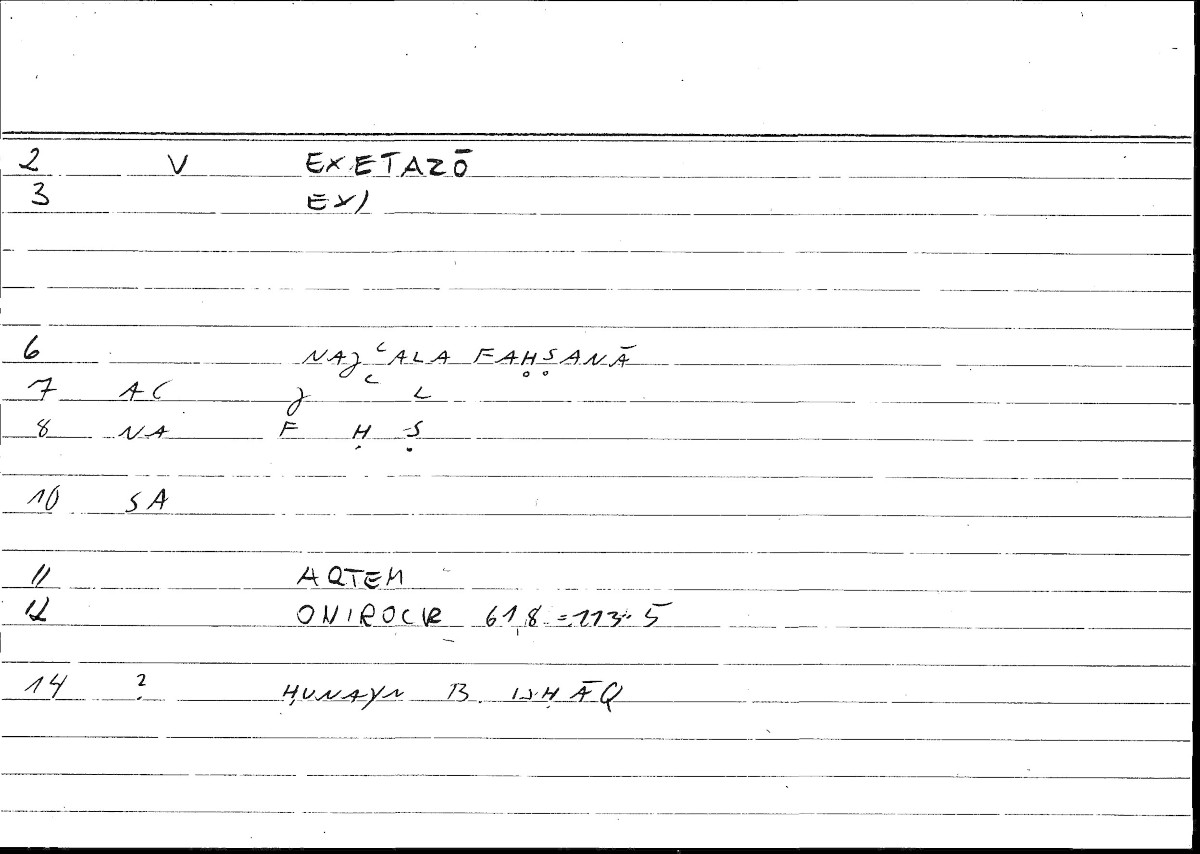 2 V EXETAZŌ
3 EX)
6 NAJʿALA FAḤṢANĀ
7 AC J ʿ L
8 NA F Ḥ Ṣ
10 SA
11 ARTEM
12 ONIROCR 61,8 = 113.5
14 ? ḤUNAYN B. ISḤĀQ